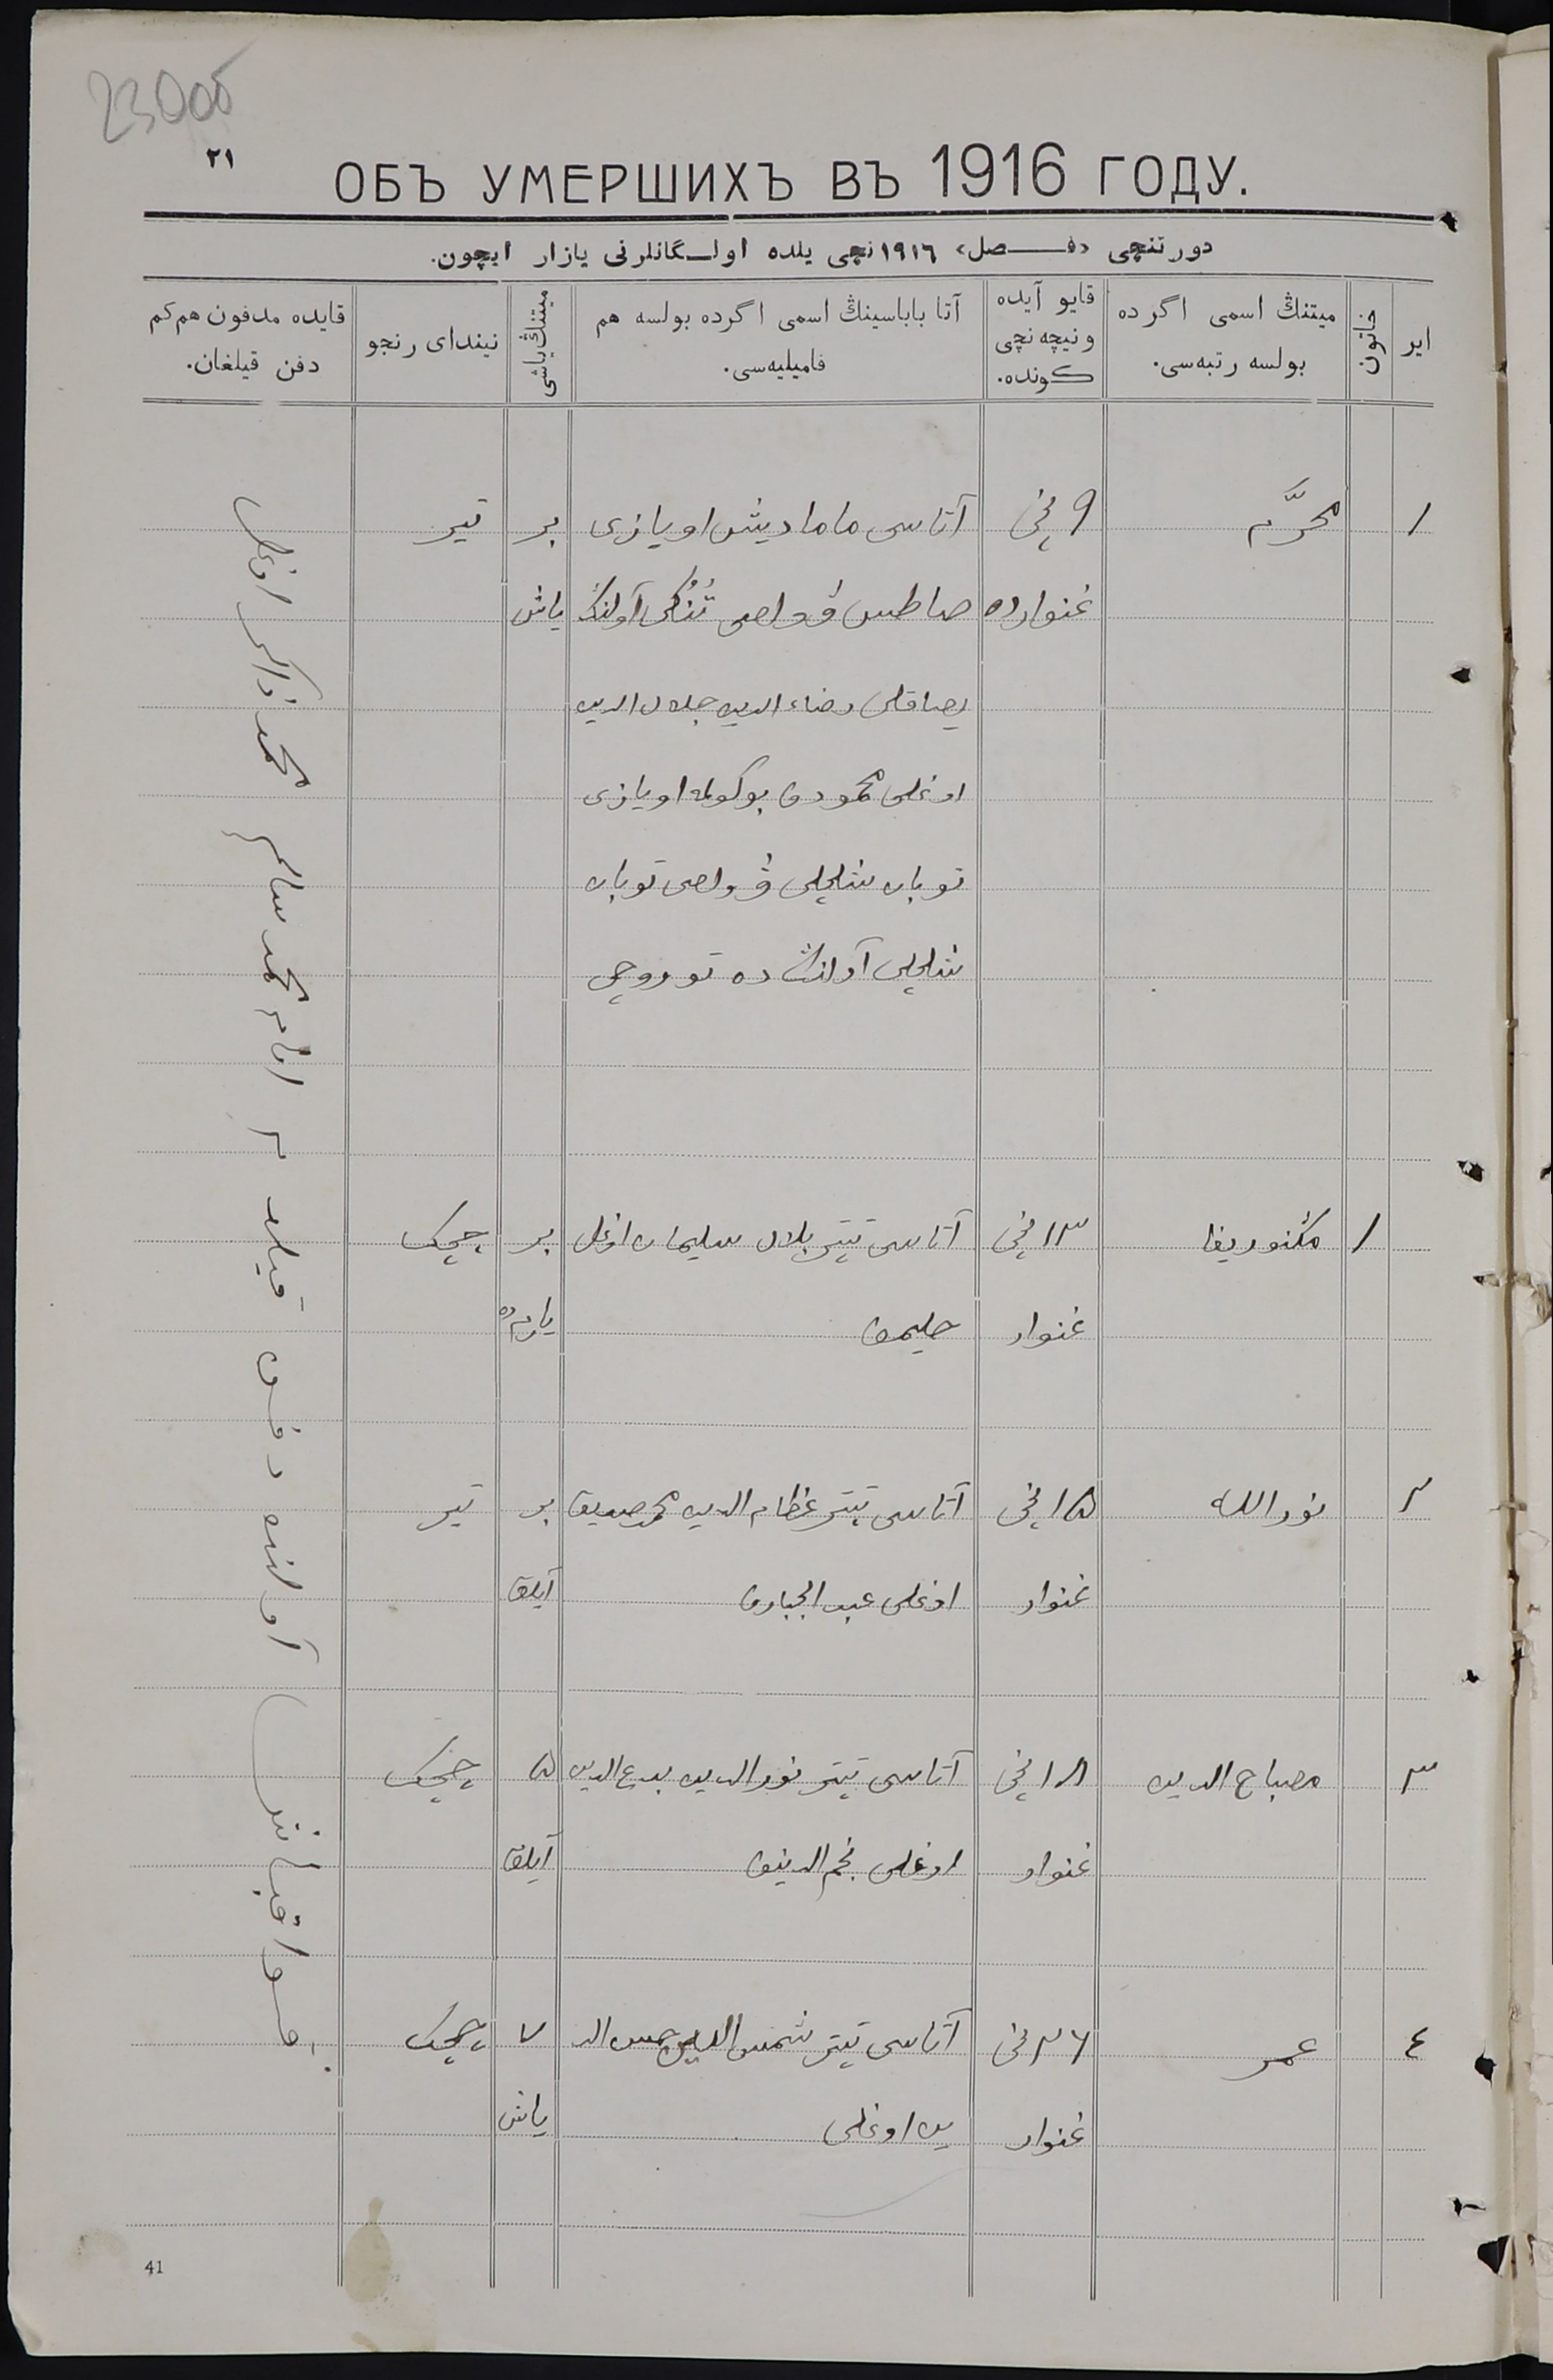 230об
٢١
ОБЪ УМЕРШИХЪ ВЪ 1916 ГОДУ.
دورتنچی «فـــصل» ١٩١٦نچی یلده اولـگانلرنی یازار ایچون.
ایر
خاتون
میتنڭ اسمی اگرده
بولسه رتبه‌سی.
قایو آیده
ونیچه نچی
كونده.
آتا باباسینڭ اسمی اگرده بولسه هم
فامیلیه‌سی.
میتنڭ یاشی
نیندای رنجو
قایده مدفون هم كم
دفن قیلغان.
١
محرّم
٩ نچی
غنوارده
آتاسی مامادیش اویازی
صاطس ڤولصی آولنڭ
رضاء الدین جلال الدین
اوغلی محمودف بوكولمه اویازی
توبان ڤولصی توبان
آولنڭ ده توروچی
بر
یاش
تیر
١
١٣ نچی
غنوار
آتاسی تیتر بلال سلیمان اوغلی
حلیمف
بر
یارم ده
چچك
٢
نورالله
١٥ نچی
غنوار
آتاسی تیتر عظام الدین محمد صدیق
اوغلی عبد الجبارف
بر
آیلق
تیر
٣
مصباح الدین
١٨ نچی
غنوار
آتاسی تیتر نورالدین بدیع الدین
اوغلی نجم الدینف
٥
آیلق
چچك
٤
عمر
٢٦ نچی
غنوار
آتاسی تیتر شمس الدین الد
ین اوغلی
٧
یاش
چچك
آولنده دفن قیلدم امام محمد سالم محمد ذاكر اوغلی
41